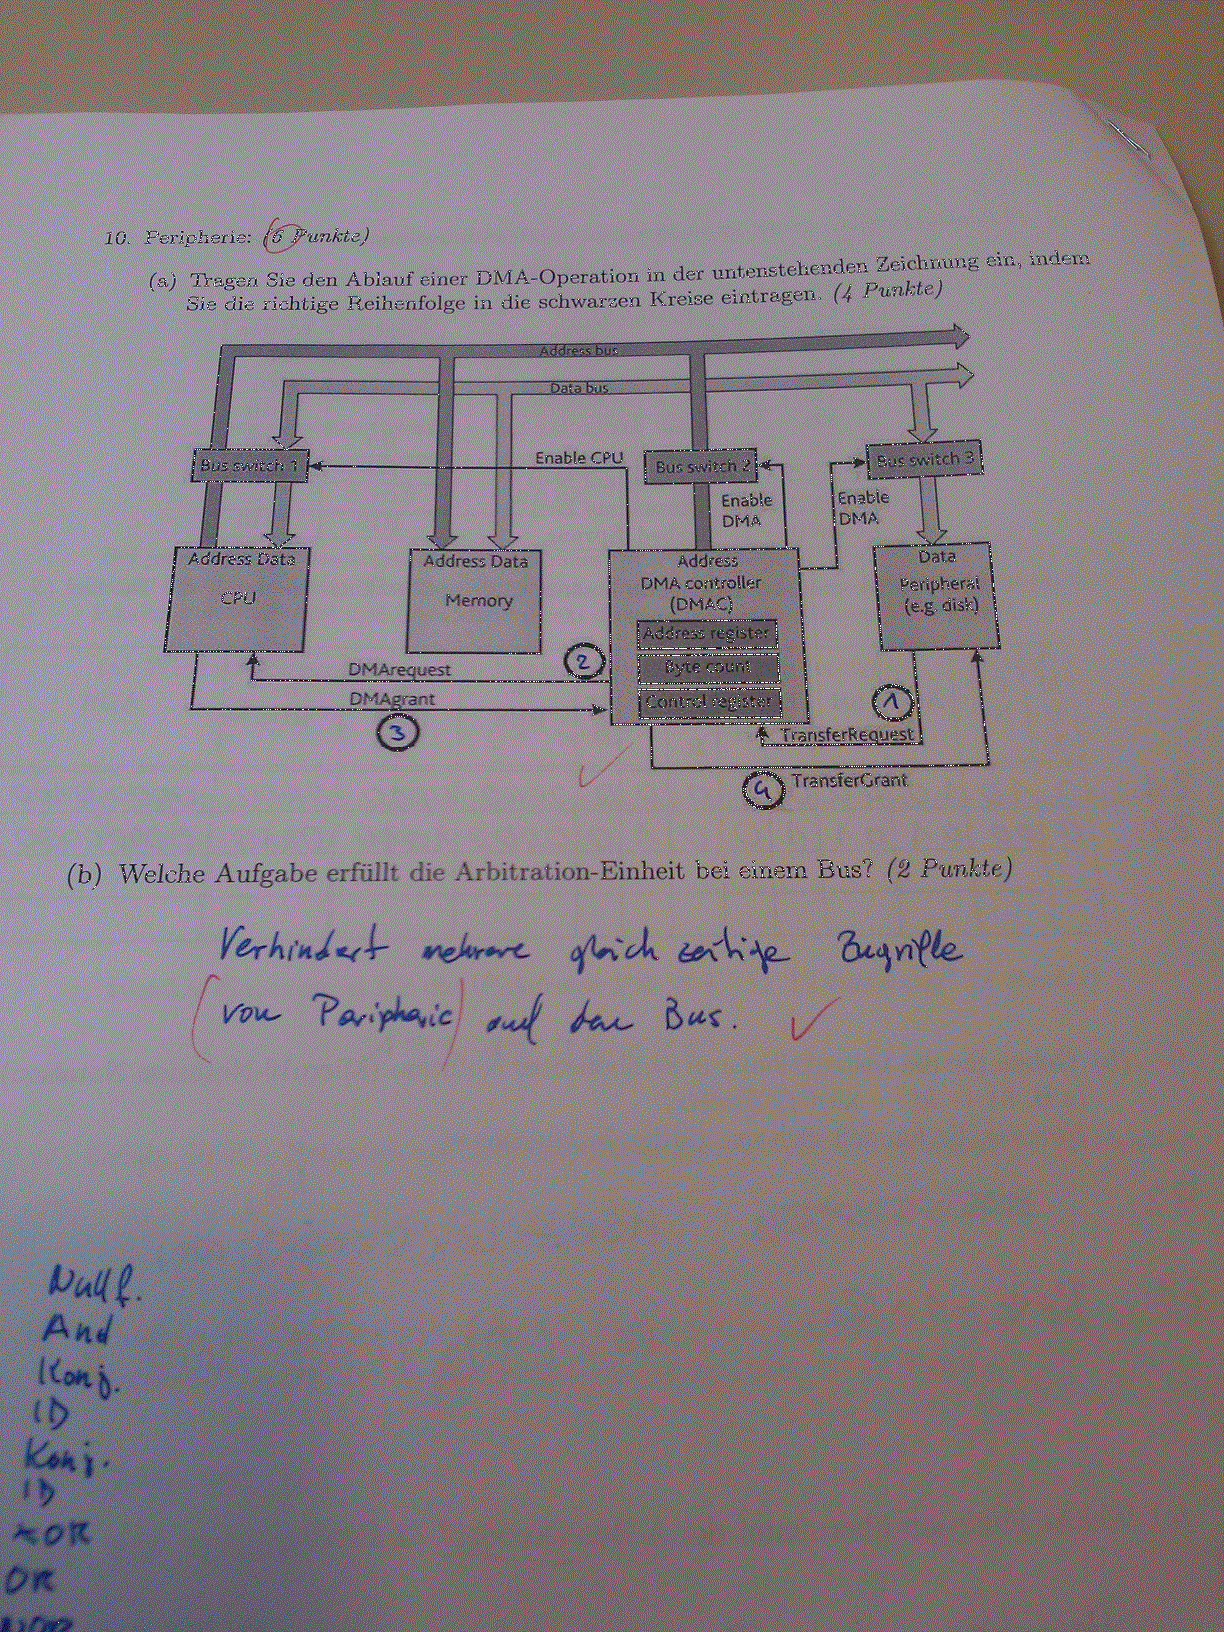 10. Peripherie: (6 Punkte)
(a) Tragen Sie den Ablauf einer DMA-Operation in der untenstehenden Zeichnung ein, indem
Sie die richtige Reihenfolge in die schwarzen Kreise eintragen. (4 Punkte)
Address bus
Data bus
Bus switch 1
Enable CPU
Bus switch 2
Bus switch 3
Enable
DMA
Enable
DMA
Address Data
CPU
Address Data
Memory
Address
DMA controller
(DMAC)
Address register
Byte count
Control register
Data
Peripheral
(e.g. disk)
2
DMArequest
DMAgrant
3
1
TransferRequest
4
TransferGrant
(b) Welche Aufgabe erfüllt die Arbitration-Einheit bei einem Bus? (2 Punkte)
Verhindert mehrere gleichzeitige Zugriffe
(von Peripherie) auf den Bus.
Nullf.
And
Konj.
ID
Konj.
ID
XOR
OR
NOR